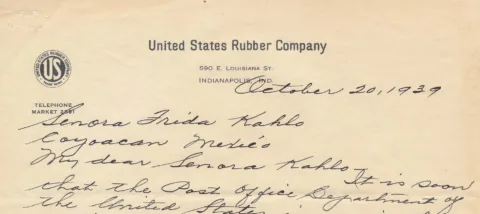 United States Rubber Company
590 E. Louisiana St.
Indianapolis, Ind.
October 20, 1939
US
TELEPHONE
MARKET
Senora Frida Kahlo
Coyoacan Mexico
My dear Senora Kahlo—
It is soon
that the Post Office Department of
the United States